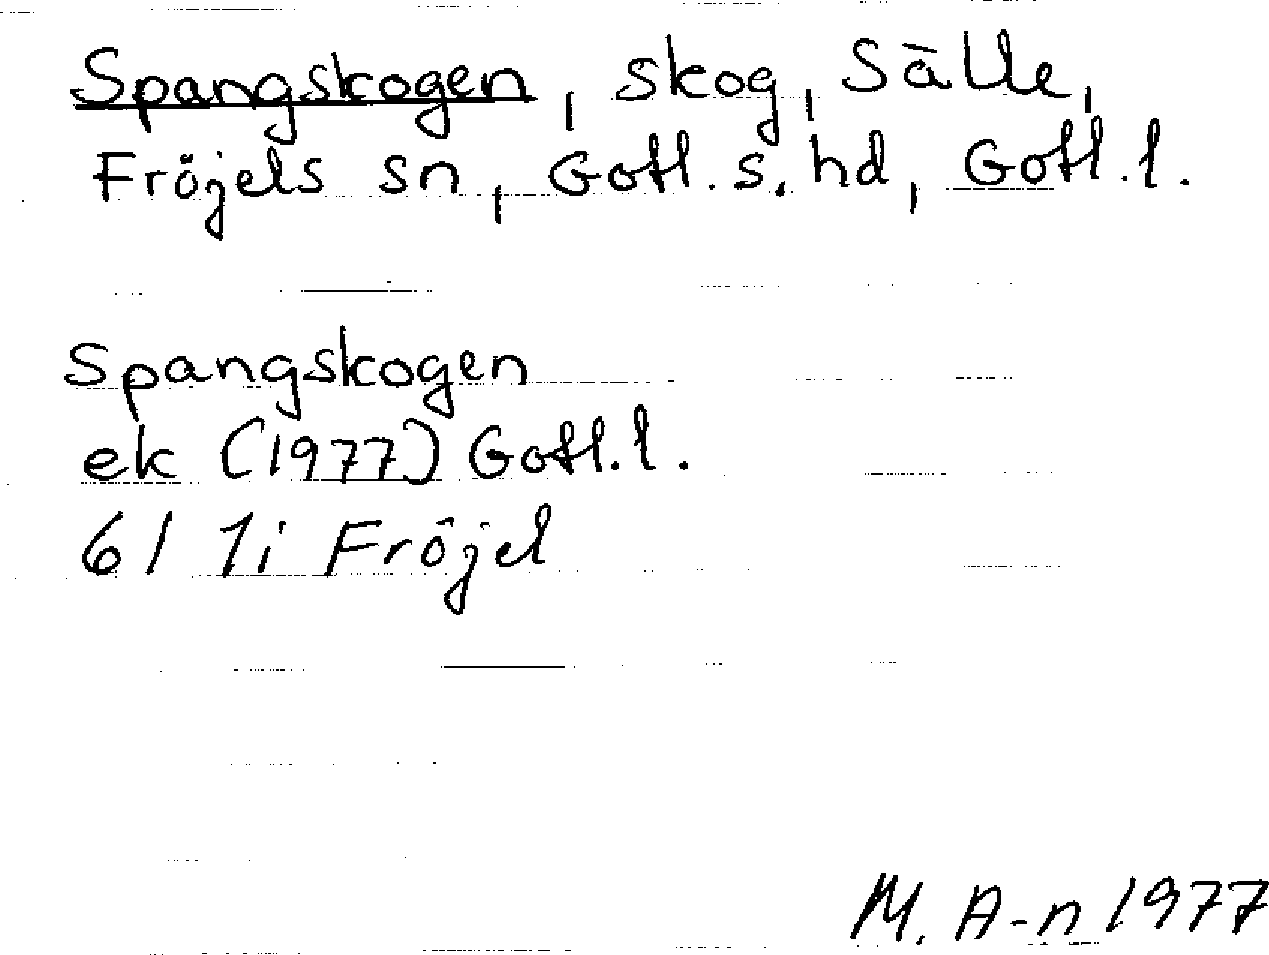 Spangskogen, skog, Sälle,
Fröjels sn, Gotl. s. hd, Gotl. l.
Spangskogen
ek (1977) Gotl. l.
6I 1i Fröjel
M. A-n 1977